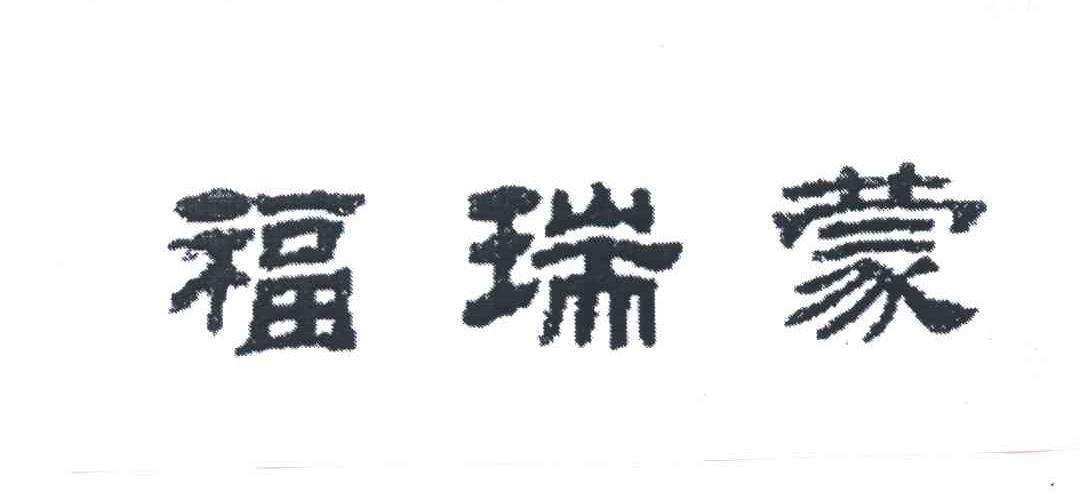 福瑞蒙